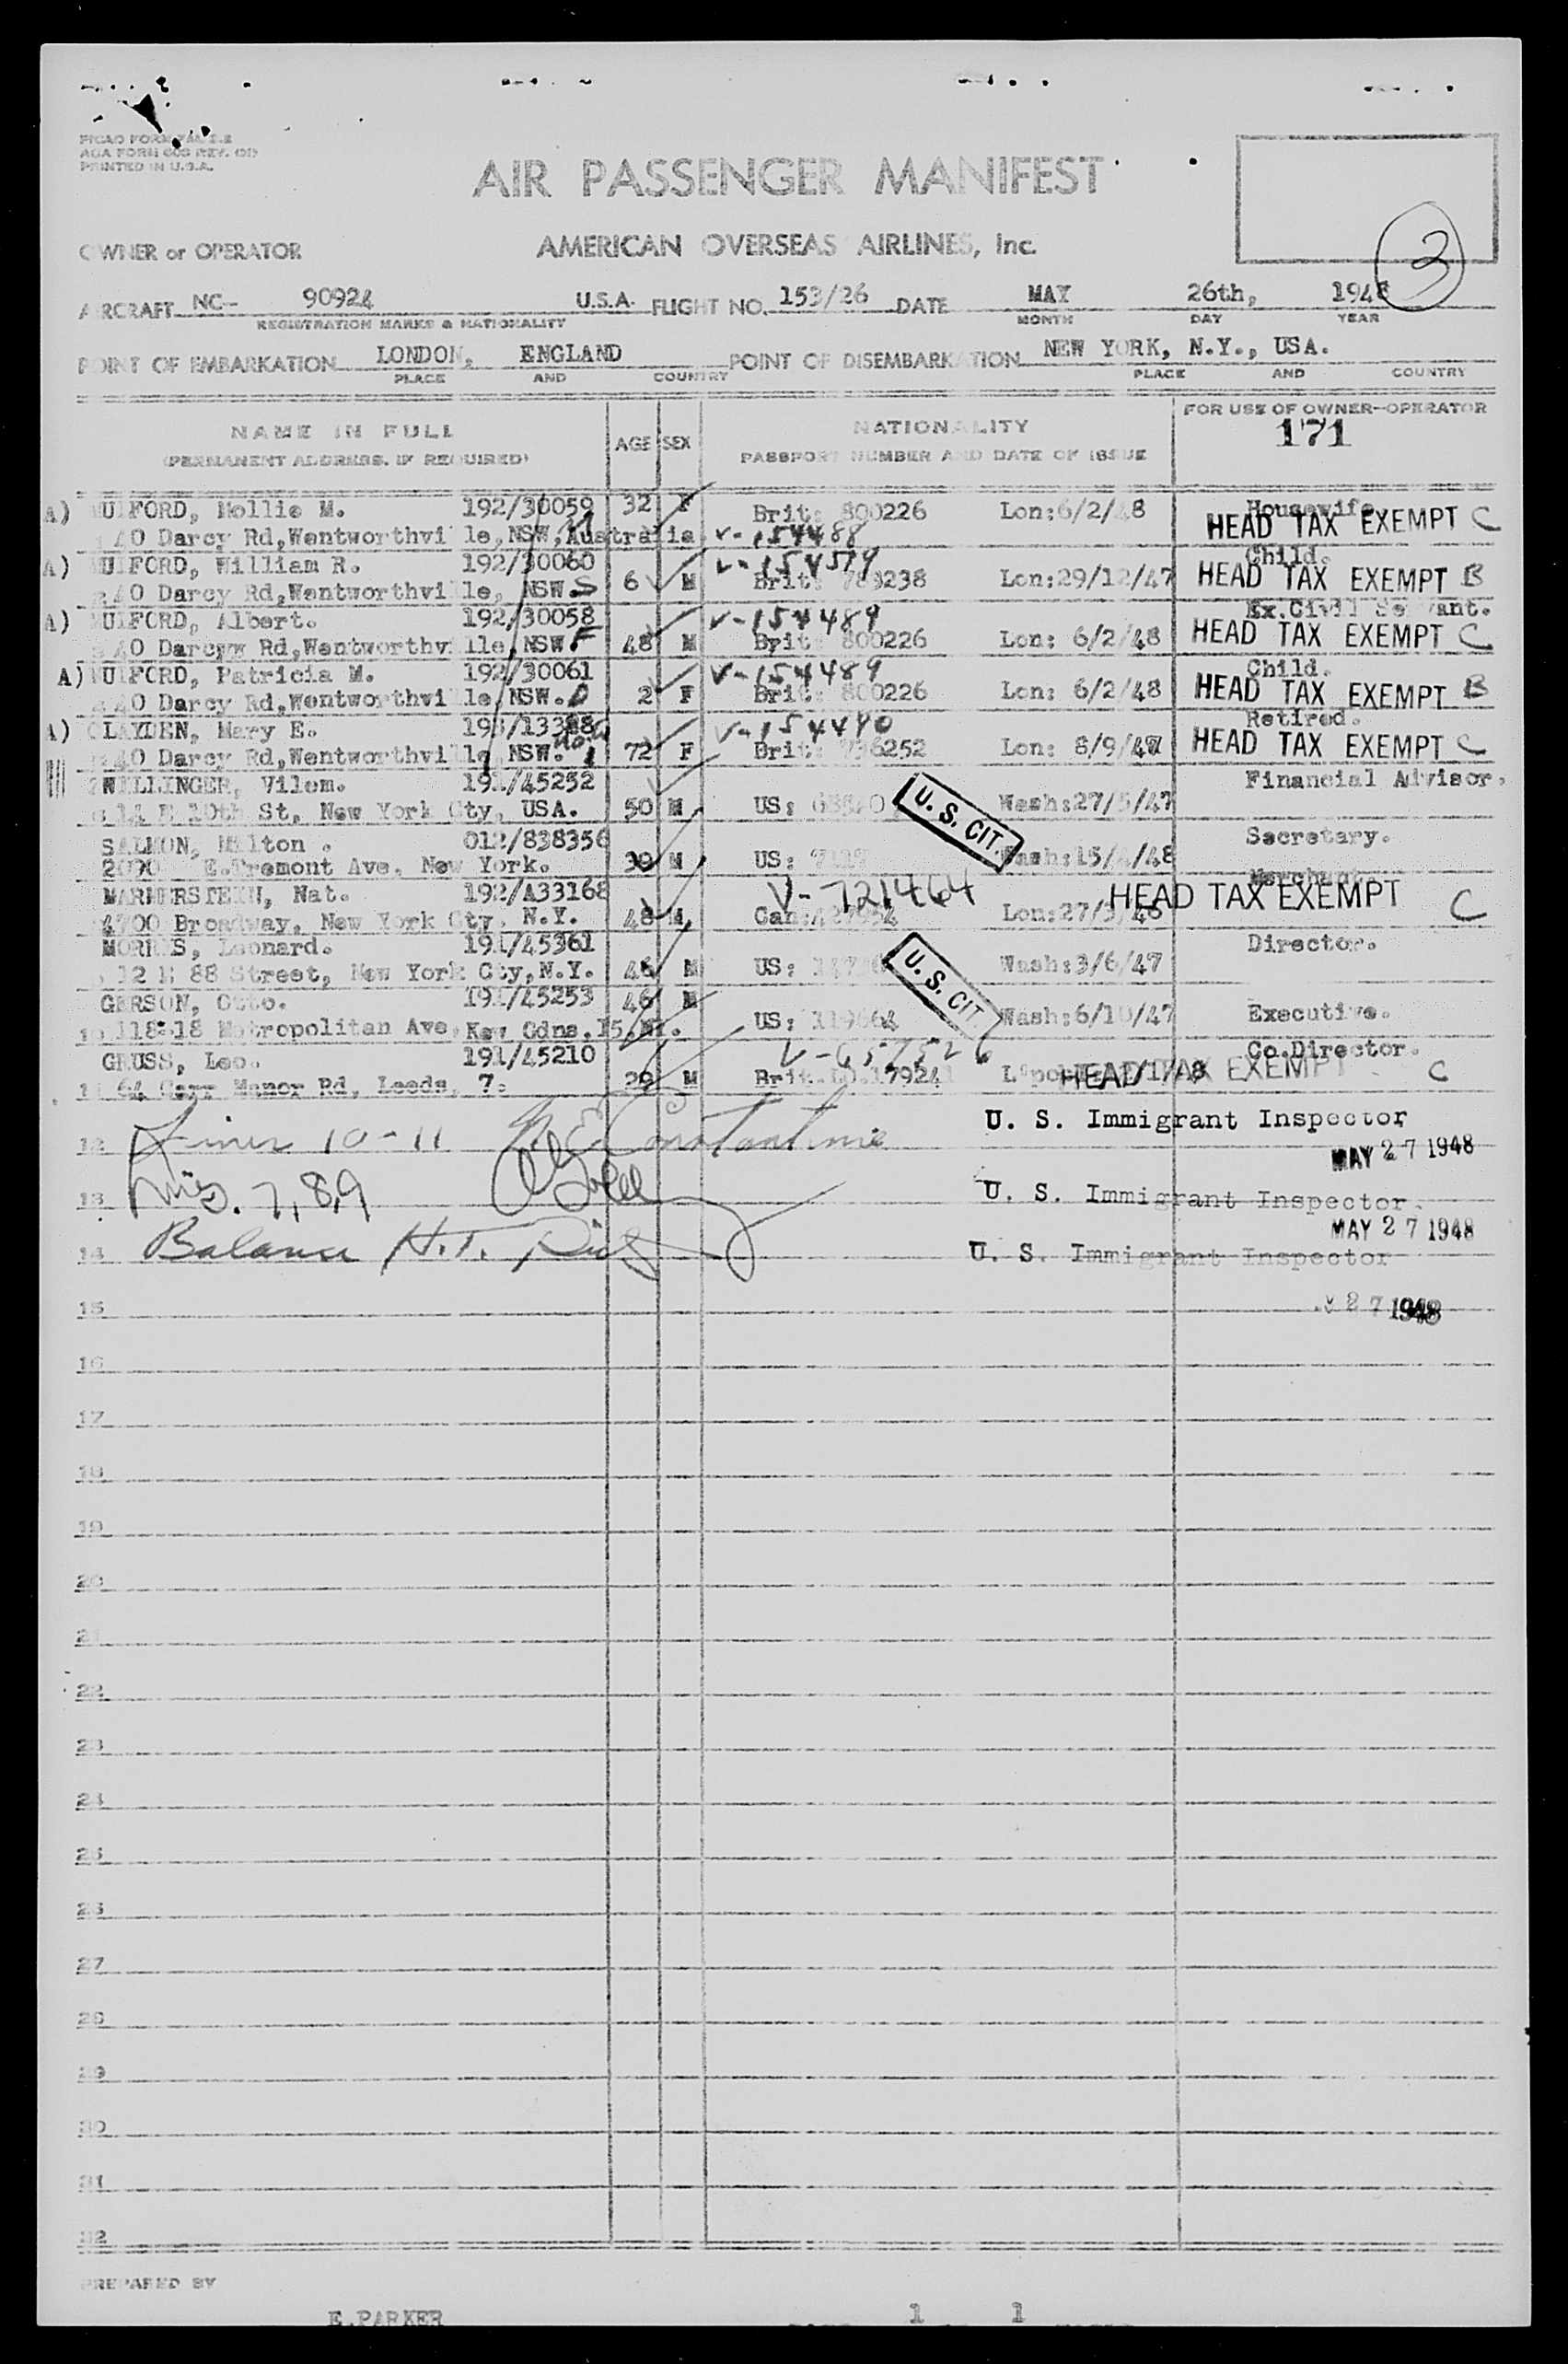 PRINTED IN U.S.A.
AIR PASSENGER MANIFEST
3
OWNER or OPERATOR AMERICAN OVERSEAS AIRLINES, Inc.
AIRCRAFT NC- 90924 U.S.A. FLIGHT NO. 153/26 DATE MAY 26th, 1948
REGISTRATION MARKS & NATIONALITY MONTH DAY YEAR
POINT OF EMBARKATION LONDON, ENGLAND POINT OF DISEMBARKATION NEW YORK, N.Y., USA.
PLACE AND COUNTRY PLACE AND COUNTRY
NAME IN FULL AGE SEX NATIONALITY FOR USE OF OWNER-OPERATOR
(PERMANENT ADDRESS, IF REQUIRED) PASSPORT NUMBER AND DATE OF ISSUE 171
A) Mollie M. 192/30059 32 F Brit: 800226 Lon:6/2/48 Housewife
Darcy Rd,Wentworthville,NSW,Australia V-154488 HEAD TAX EXEMPT C
A) William R. 192/30060 V-154579 Child.
Darcy Rd,Wentworthville, NSW. S 6 M Brit: Lon:29/12/47 HEAD TAX EXEMPT B
A) Albert. 192/30058 V-154489 Ex.Civil Servant.
Rd,Wentworthville,NSW F 48 M Brit: 800226 Lon: 6/2/48 HEAD TAX EXEMPT C
A) Patricia M. 192/30061 V-154489 Child.
Darcy Rd,Wentworthville,NSW. D 2 F Brit: 800226 Lon: 6/2/48 HEAD TAX EXEMPT B
A) CLAYDEN, Mary E. V-154490 Retired.
Darcy Rd,Wentworthville,NSW. 72 F Brit: 736252 Lon: 8/9/47 HEAD TAX EXEMPT C
Vilem. 191/45252 Financial Advisor.
10th St, New York Cty, USA. 50 M US: U. S. CIT. Wash:27/5/47
SALMON, Milton . 012/838356 Secretary.
2090 E.Tremont Ave, New York. 39 M US: Wash:15/4/48
Nat. 192/A33168 V-721464 Merchant.
4700 Broadway, New York Cty, N.Y. 48 M Can: Lon:27/3/46 HEAD TAX EXEMPT C
MORRIS, Leonard. 191/45361 Director.
88 Street, New York Cty,N.Y. 46 M US: U. S. CIT. Wash:3/6/47
GERSON, Otto. 191/45253 46 M
10 118-18 Metropolitan Ave, Kew Gdns.15.NY. US: Wash:6/10/47 Executive.
GRUSS, Leo. 191/45210 V-657526 Co.Director.
11 64 Manor Rd, Leeds, 7. 29 M Brit. HEAD TAX EXEMPT C
12 10-11 Constantine U. S. Immigrant Inspector
MAY 27 1948
13 7,8,9 U. S. Immigrant Inspector
MAY 27 1948
14 Balance H.T. U. S. Immigrant Inspector
15 27 1948
16
17
18
19
20
21
22
23
24
25
26
27
28
29
30
31
32
PREPARED BY
E.PARKER 1 1